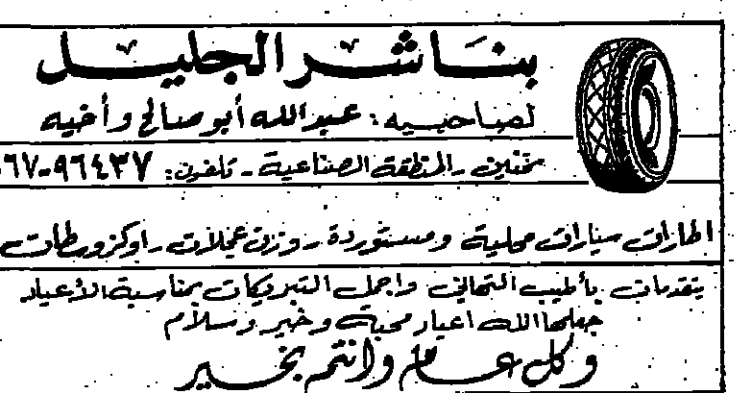 بناشر الجليل
لصاحبيه: عبدالله أبو صالح وأخيه
سخنين - المنطقة الصناعية - تلفون: ٩٦٤٣٧-٠٦٧
اطارات سيارات محلية ومستوردة - وزن عجلات -
يتقدمان بأطيب التهاني واجمل التبريكات بمناسبة الأعياد
جعلها الله اعياد محبة وخير وسلام
وكل عام وانتم بخير